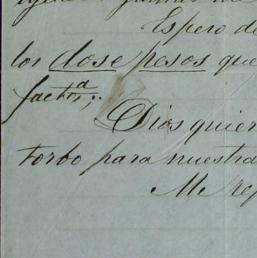 Espero de
los dose pesos que
factª;.
Dios quier
torbo para nuestra
Me rep